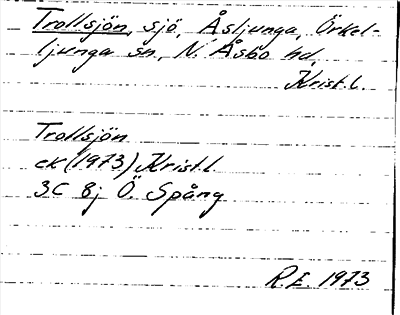 Trollsjön, sjö, Åsljunga, Örkel-
ljunga sn, N. Åsbo hd,
Krist.l.
Trollsjön
ek (1973) Krist.l.
3C 8j Ö. Spång
R.E. 1973